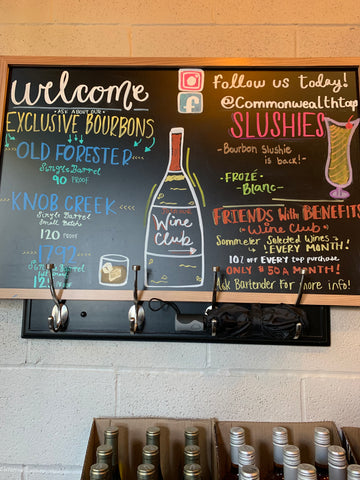 Welcome
ASK ABOUT OUR
EXCLUSIVE BOURBONS
OLD FORESTER
Single Barrel
90 PROOF
KNOB CREEK
Single Barrel
Small Batch
120 PROOF
1792
Follow us today!
@Commonwealthtap
SLUSHIES
-Bourbon Slushie
is back!-
-FROZÉ-
Blanc-
Wine
Club
FRIENDS With BENEFITS
(Wine Club)
Sommelier Selected Wines
EVERY MONTH!
10% off EVERY tap purchase
ONLY $50 A MONTH!
Ask Bartender For more info!